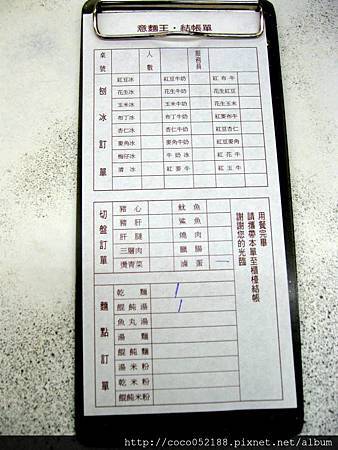 意麵王・結帳單
桌號 人數 服務員
刨冰訂單
紅豆冰 紅豆牛奶 紅布牛
花生冰 花生牛奶 花生紅豆
玉米冰 玉米牛奶 花生玉米
布丁冰 布丁牛奶 紅麥布牛
杏仁冰 杏仁牛奶 紅豆杏仁
麥角冰 麥角牛奶 紅豆麥角
梅仔冰 牛奶冰 紅花牛
清冰 紅麥牛 紅玉牛
切盤訂單
豬心 魷魚
豬肝 鯊魚
肝膶 燒肉
三層肉 臘腸
燙青菜 滷蛋
用餐完畢
請攜帶本單至櫃檯結帳
謝謝您的光臨
麵點訂單
乾麵
餛飩湯
魚丸湯
湯麵
餛飩麵
湯米粉
乾米粉
餛飩米粉
http://coco052188.pixnet.net/album